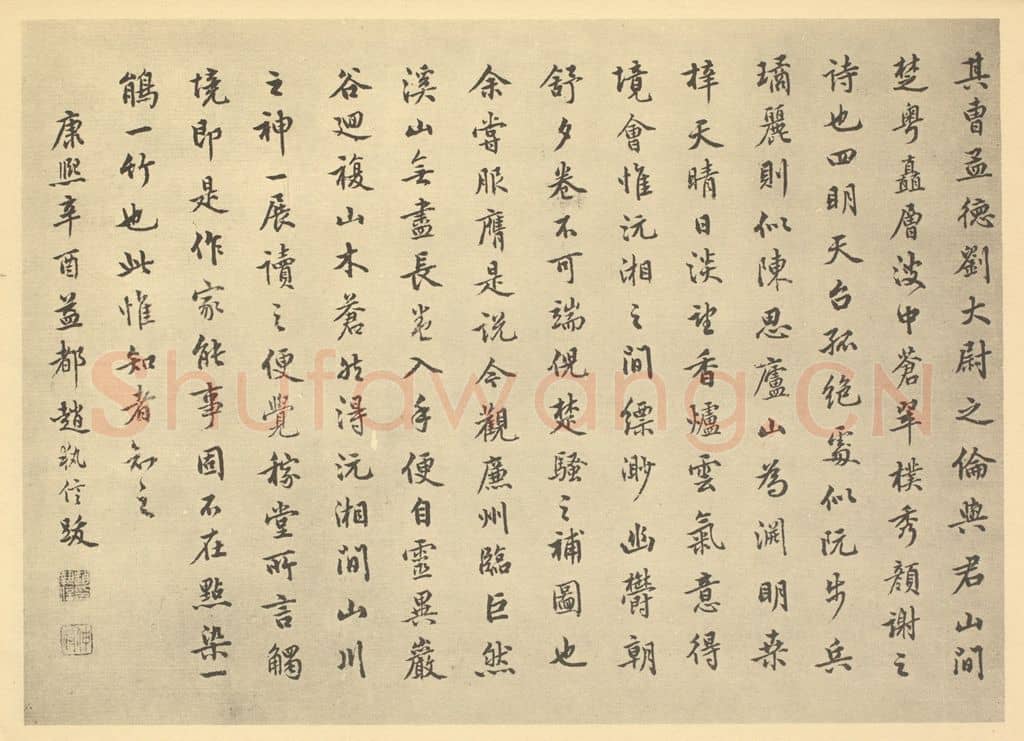 其曹孟德劉大尉之倫與君山間
楚粤矗層波中蒼翠樸秀顏謝之
诗也四明天台孤絶處似阮步兵
璚麗則似陳思廬山為淵明桒
梓天晴日淡望香爐雲氣意得
境會惟沅湘之間縹渺幽欝朝
舒夕卷不可端倪楚騷之補圖也
余嘗服膺是说今觀廉州臨巨然
溪山無盡長卷入手便自靈異巖
谷迴複山木蒼然得沅湘間山川
之神一展讀之便覺稼堂所言觸
境即是作家能事固不在點染一
鵑一竹也此惟知者知之
康熙辛酉益都趙執信跋
Shufawang.CN